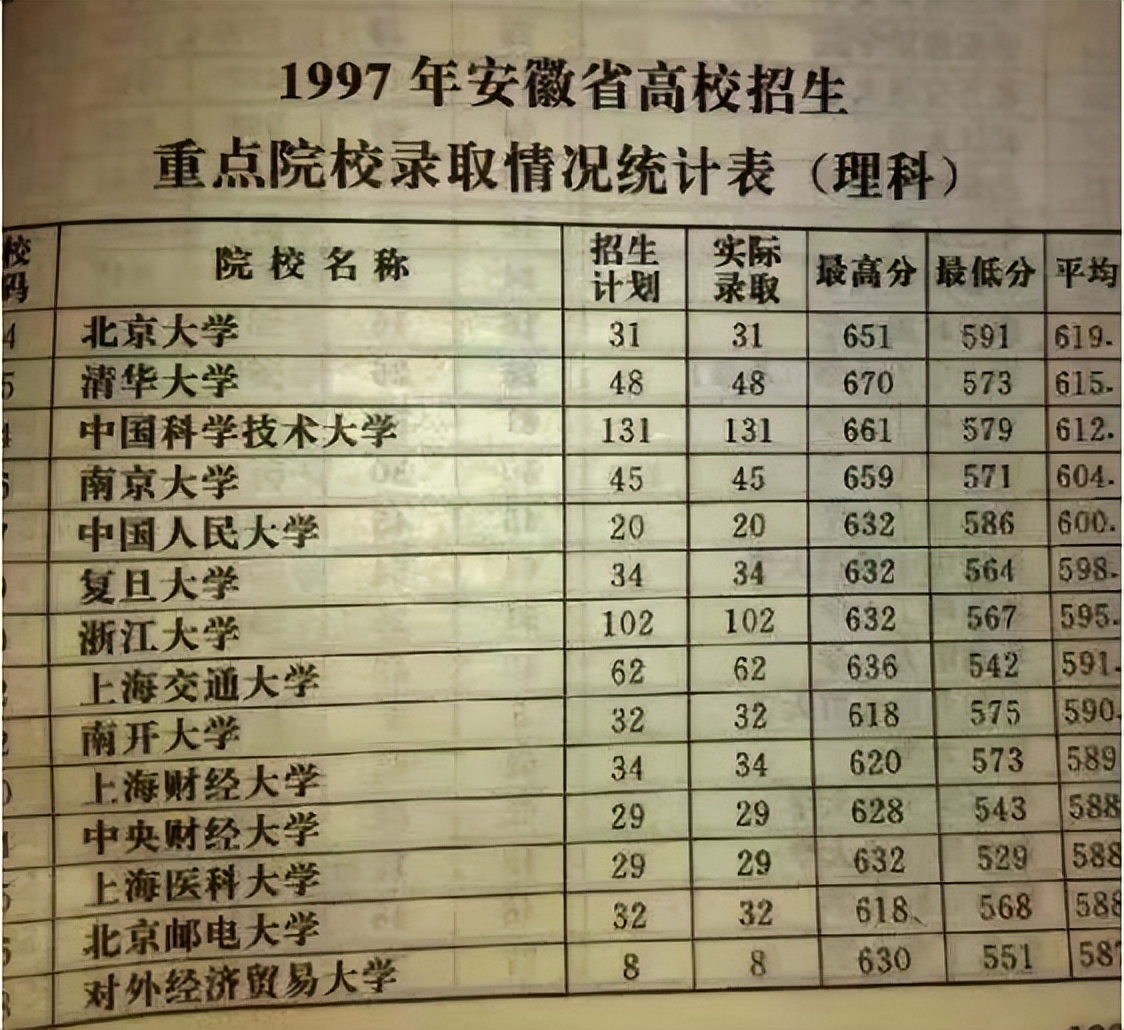 1997年安徽省高校招生
重点院校录取情况统计表（理科）
校码 院校名称 招生计划 实际录取 最高分 最低分 平均
4 北京大学 31 31 651 591 619.
5 清华大学 48 48 670 573 615.
4 中国科学技术大学 131 131 661 579 612.
南京大学 45 45 659 571 604.
中国人民大学 20 20 632 586 600.
复旦大学 34 34 632 564 598.
浙江大学 102 102 632 567 595.
上海交通大学 62 62 636 542 591.
南开大学 32 32 618 575 590.
上海财经大学 34 34 620 573 589
中央财经大学 29 29 628 543 588
上海医科大学 29 29 632 529 588
北京邮电大学 32 32 618、 568 588
对外经济贸易大学 8 8 630 551 587